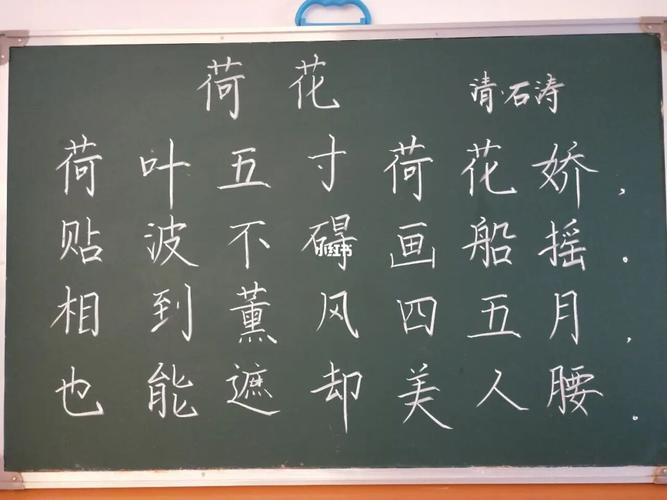 荷花 清·石涛
荷叶五寸荷花娇,
贴波不碍画船摇。
相到薰风四五月,
也能遮却美人腰。
小红书